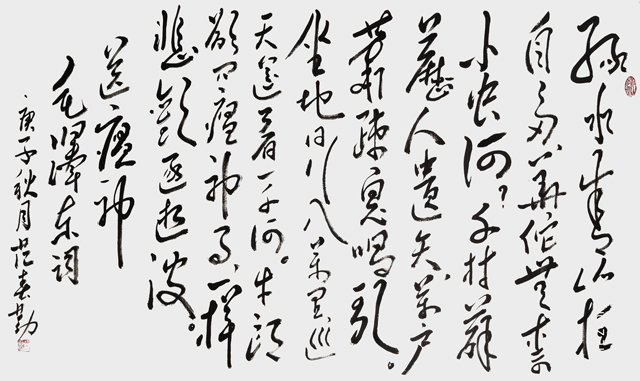 绿水青山枉
自多，華佗無奈
小虫何？千村薜
荔人遺矢萬户
萧疏鬼唱歌。
坐地日行八萬里巡
天遥看一千河。牛郎
欲问瘟神事，一样
悲歡逐逝波。
送瘟神
毛澤东词
庚子秋月范春勤